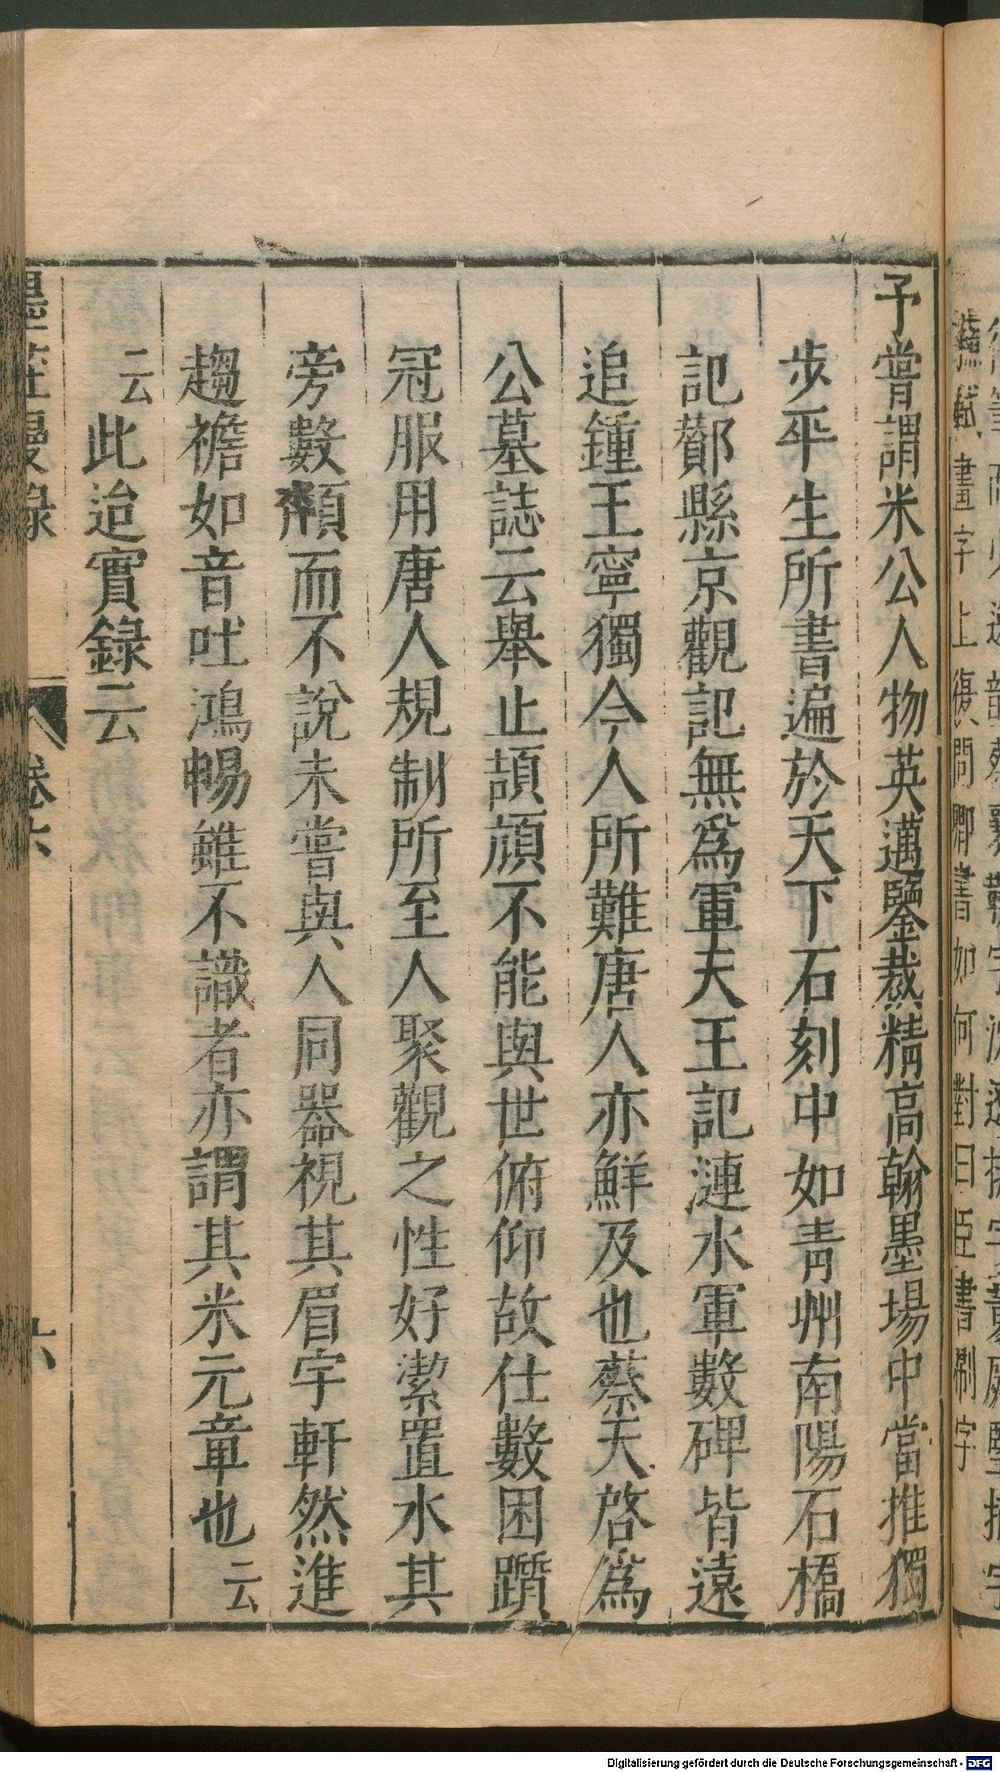 蘇軾畫字上復問卿書如何對曰臣書刷字
予嘗謂米公人物英邁鑒裁精高翰墨場中當推獨
步平生所書遍於天下石刻中如青州南陽石橋
記鄼縣京觀記無爲軍天王記漣水軍數碑皆遠
追鍾王寧獨今人所難唐人亦鮮及也蔡天啓爲
公墓誌云舉止頡頏不能與世俯仰故仕數困躓
冠服用唐人規制所至人聚觀之性好潔置水其
旁數頮而不說未嘗與人同器視其眉宇軒然進
趨襜如音吐鴻暢雖不識者亦謂其米元章也云
云此迨實錄云
墨莊漫錄 卷六 六
Digitalisierung gefördert durch die Deutsche Forschungsgemeinschaft - DFG